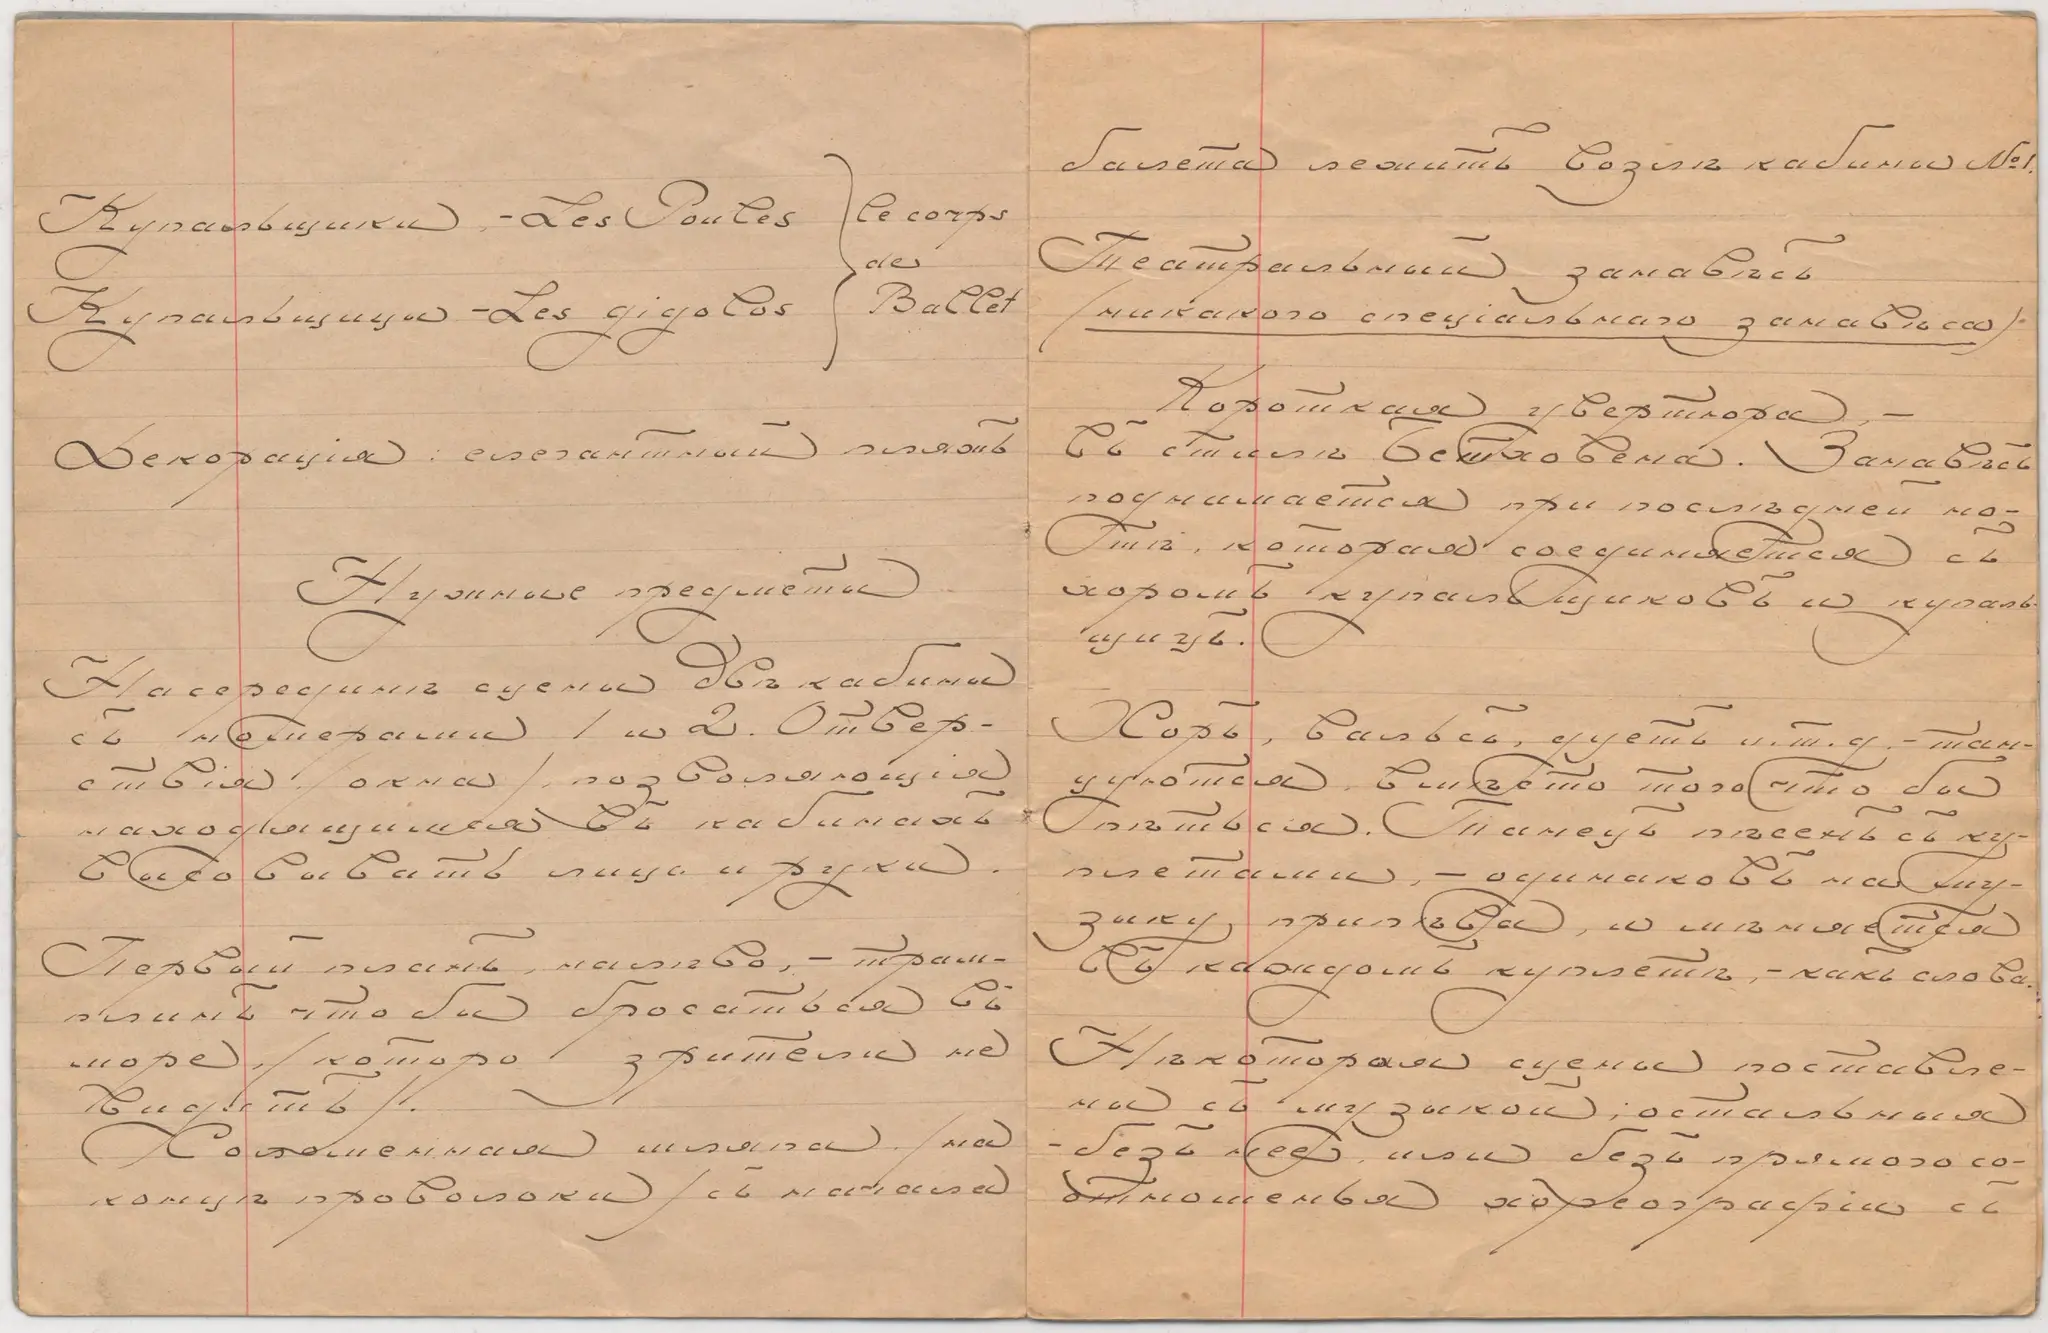 Купальщики, - Les Poules
le corps
de
Купальщицы - Les gigolos
Ballet
Декорація: елегантный пляжъ
Нужные предметы
На середине сцены двѣ кабины
съ номерами 1 и 2. Отвер-
ствія /окна/, позволяющія
находящимся въ кабинахъ
высовывать лицо и руки.
Первый планъ, налѣво, - трам-
плинъ что бы бросаться въ
море, /которо зрители не
видятъ/.
Соломенная шляпа /на
концѣ проволоки/ съ начала
балета лежитъ возлѣ кабины №1.
Театральный занавѣсъ
/никакого спеціальнаго занавѣса/.
Короткая увертюра, -
въ стилѣ Бетховена. Занавѣсъ
поднимается при послѣдней но-
тѣ, которая соединяется съ
хоромъ купальщиковъ и купаль-
щицъ.
Хоръ, вальсъ, дуетъ и.т.д. - тан-
цуются, вмѣсто того что бы
пѣться. Танецъ пѣсенъ съ ку-
плетами, - одинаковъ на му-
зыку припѣва, и мѣняется
въ каждомъ куплетѣ, - какъ слова.
Нѣкоторая сцены поставле-
ны съ музыкой; остальныя
- безъ нее, или безъ прямого со-
отношенья хореографіи съ